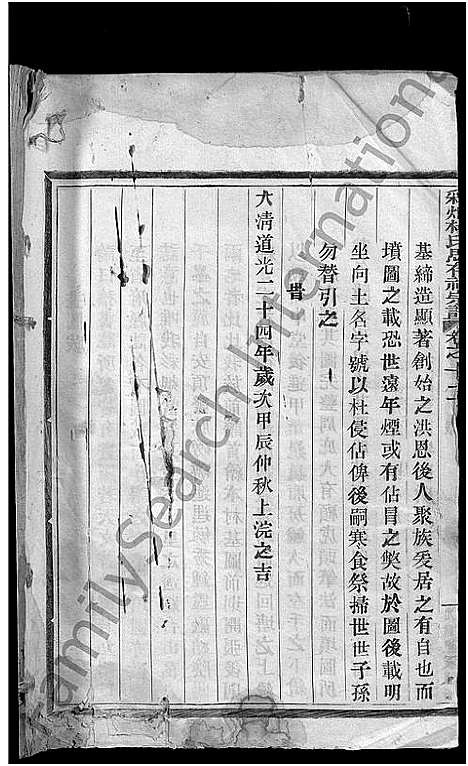 基締造顯著創始之洪恩後人聚族爰居之有自也而
墳圖之載恐世遠年煙或有佔冒之獘故於圖後載明
坐向土名字號以杜侵佔俾後嗣寒食祭掃世世子孫
勿替引之
旹
大清道光二十四年歲次甲辰仲秋上浣之吉
FamilySearch International